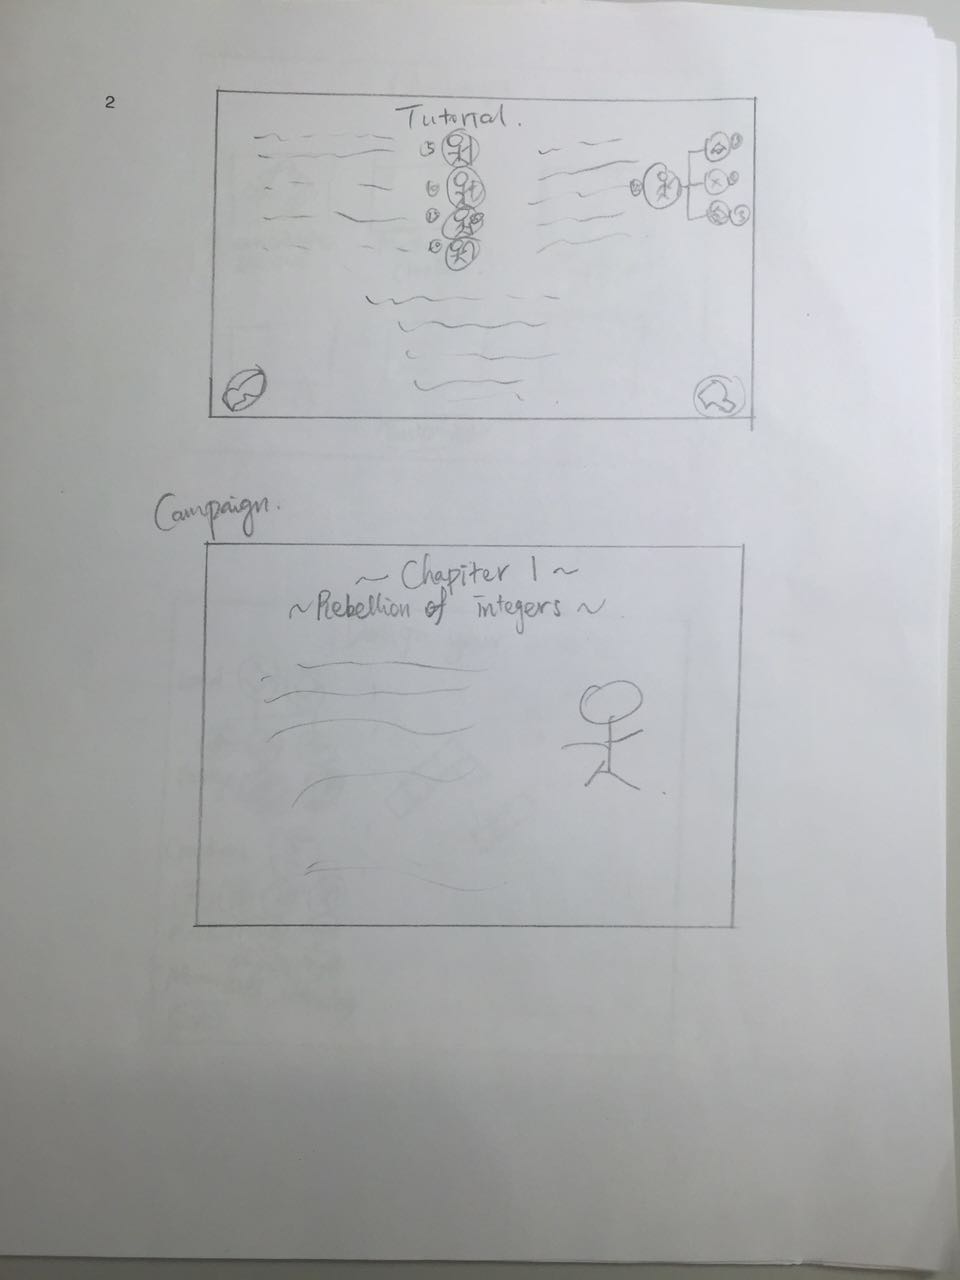 2
Tutorial.
Campaign.
~ Chapiter 1 ~
~Rebellion of integers ~